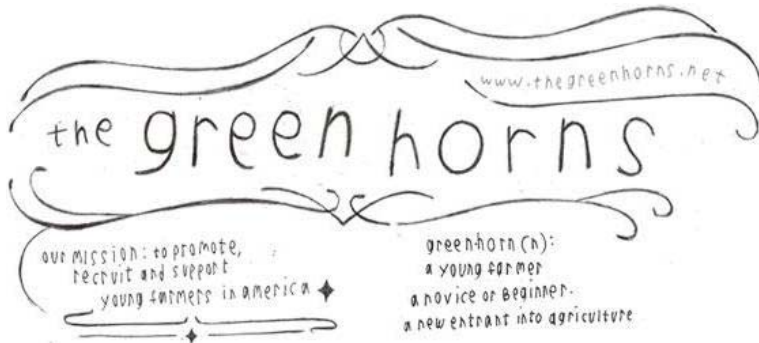 www.thegreenhorns.net
the greenhorns
our mission: to promote,
recruit and support
young farmers in america
greenhorn (n):
a young farmer
a novice or beginner.
a new entrant into agriculture